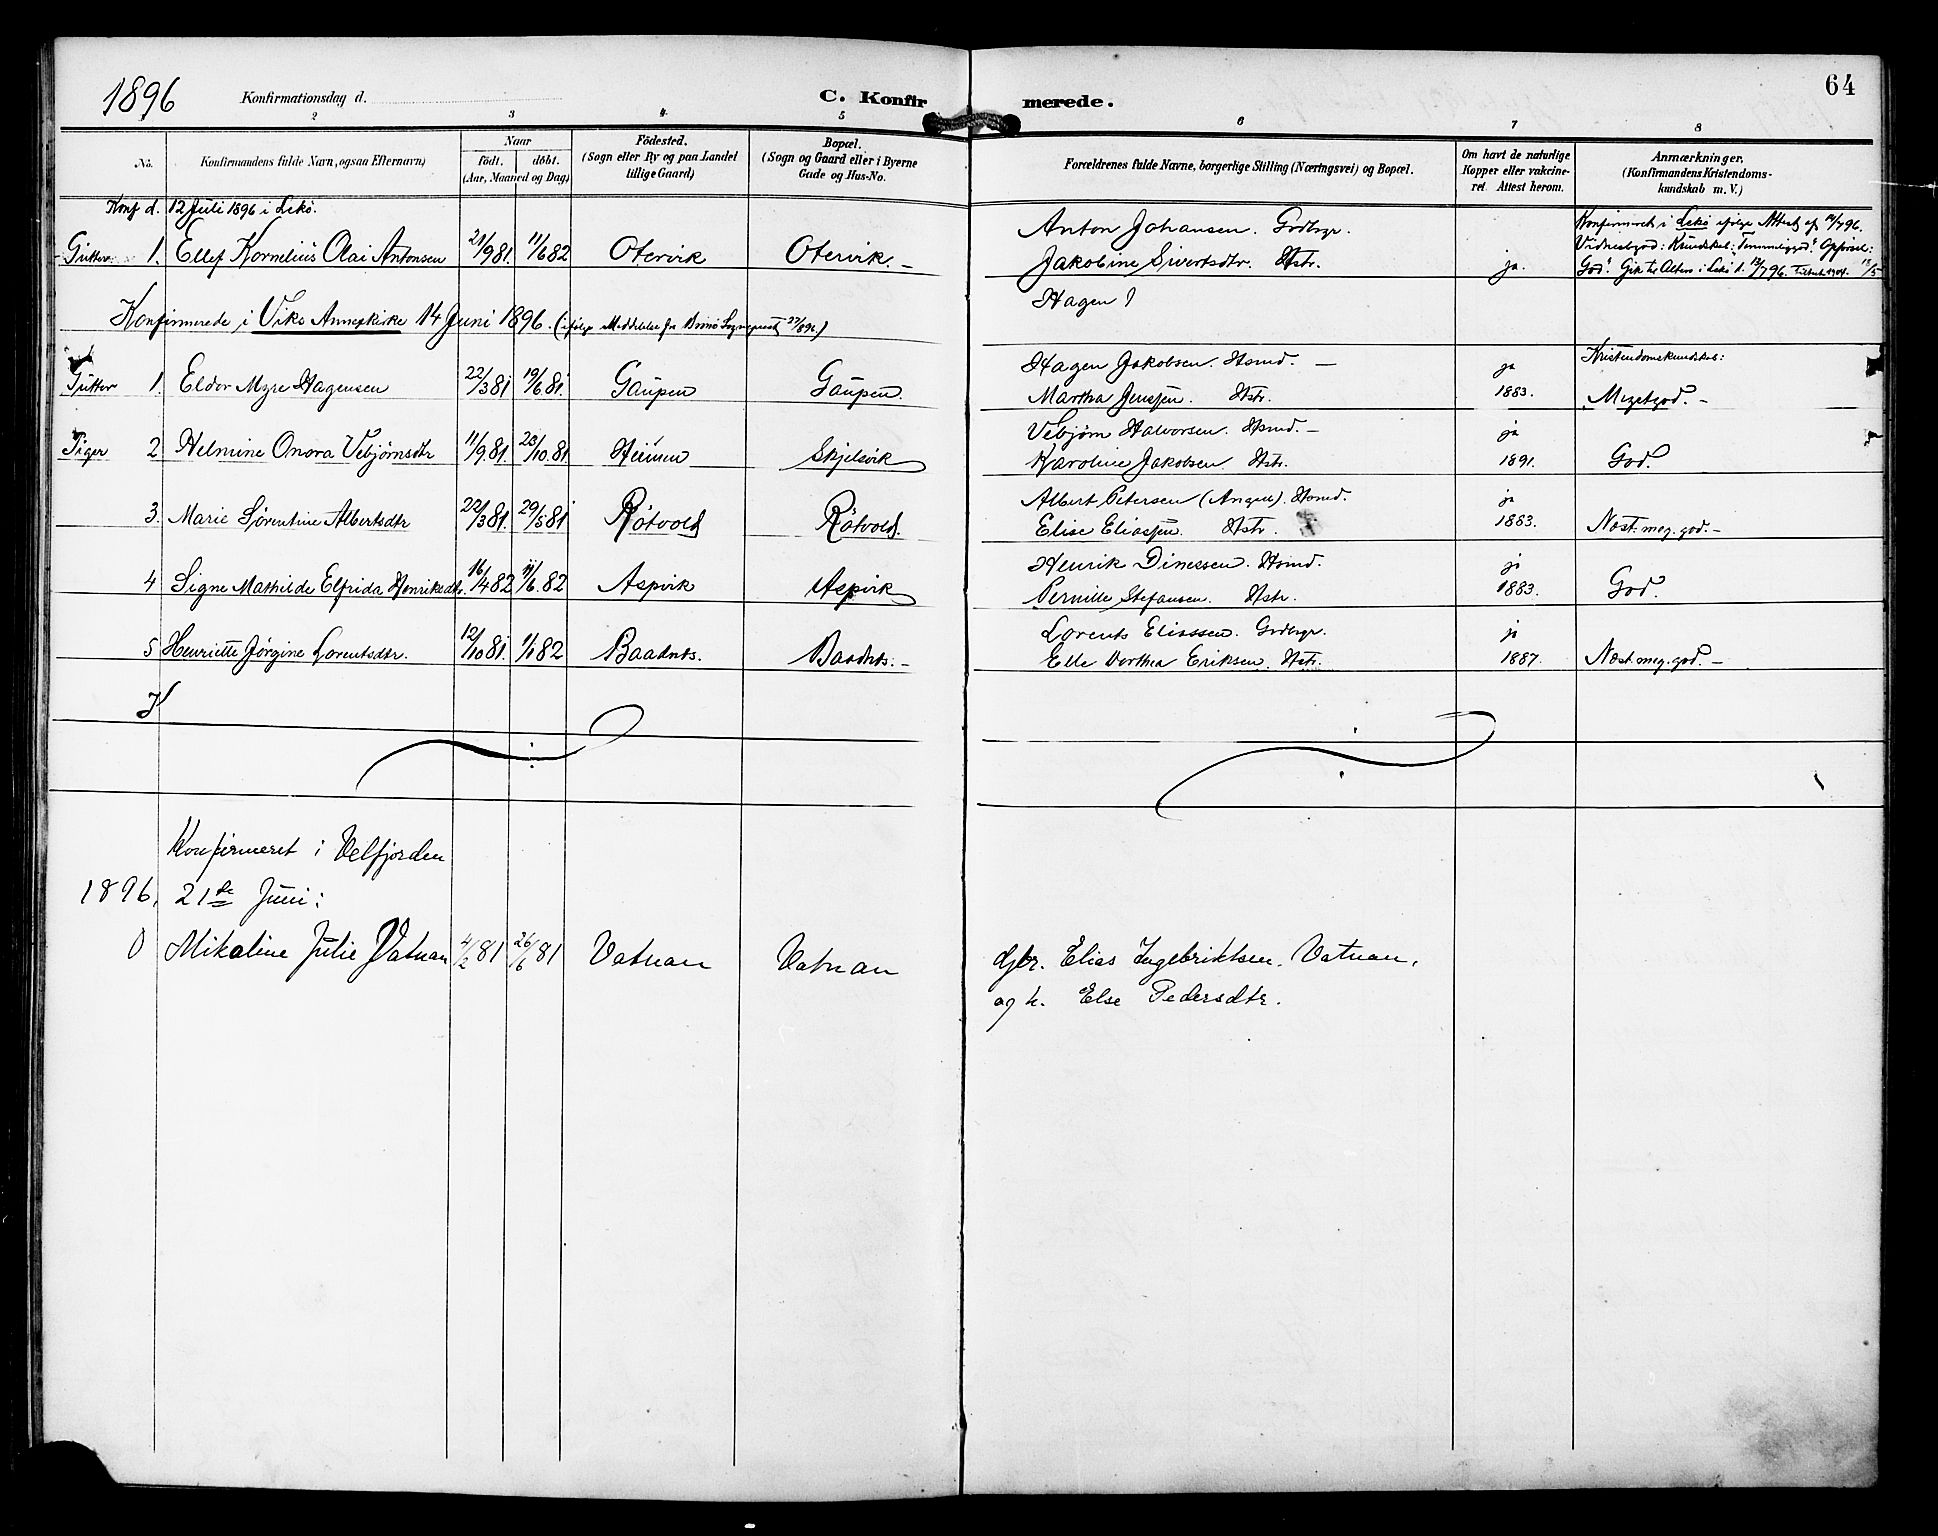 1896 Konfirmationsdag d. C. Konfirmerede. 64
2 3 4 5 6 7 8
No. Konfirmandens fulde Navn, ogsaa Efternavn) Naar födt. döbt. (Aar, Maaned og Dag) Födested. (Sogn eller By og paa Landet tillige Gaard) Bopæl. (Sogn og Gaard eller i Byerne Gade og Hus-No. Forældrenes fulde Navne, borgerlige Stilling (Næringsvei) og Bopæl. Om havt de naturlige Kopper eller vakcineret. Attest herom. Anmærkninger, (Konfirmandens Kristendomskundskab m. V.)
Konf d. 12 Juli 1896 i Lekø.
Gutter: 1. Ellef Kornelius Olai Antonsen 21/9 81. 11/6 82 Otervik Otervik. – Anton Johansen. Gdbrgr.
Jakobine Sivertsdtr. Hstr. ja. Konfirmeret i Lekø ifølge Attest af
Kundskab: Temmeliggod. Opførsel:
God. Gik til Alters i Lekø d.
Konfirmerede i Viks Annexkirke 14 Juni 1896. (ifølge Meddelelse fra Sognepræst) Hagen J
Gutter 1. Eldor Myre Hagensen 22/3 81 19/6 81. Gaupen Gaupen. Hagen Jakobsen. Hsmd. – ja Kristendomskundskab:
Martha Jenssen. Hstr. 1883. Megetgod. –
Piger 2 Helmine Onora Vebjørnsdtr 11/9 81. 23/10 81 Skjelsvik Vebjørn Halvorsen. Hsmd. – ja
Karoline Jakobsen. Hstr. 1891. God.
3. Marie Sørentine Albertsdtr 22/3 81. 29/5 81 Røtvold Røtvold. Albert Petersen Hsmd. ja
Elise Eliassen. Hstr. 1883. Næst. meg. god. –
4 Signe Mathilde Elfrida Henriksdtr. 16/4 82 11/6. 82 Aspvik Aspvik Henrik Dinessen. Hsmd. ja
Pernille Stefansen. Hstr. 1883. God.
5 Henriette Jørgine Lorentsdtr. 12/10 81. 1/1 82 Baadnts. Baadnts. – Lorents Eliassen. Gdbrgr. ja
Elle Dorthea Eriksen. Hstr. 1887. Næst. meg. god. –
Konfirmeret i Velfjorden
1896, 21de Juni:
0 Mikaline Julie Vatnan 4/2 81 26/6 81 Vatnan Vatnan gbr. Elias Ingebriktsen. Vatnan,
og h. Else Pedersdtr.